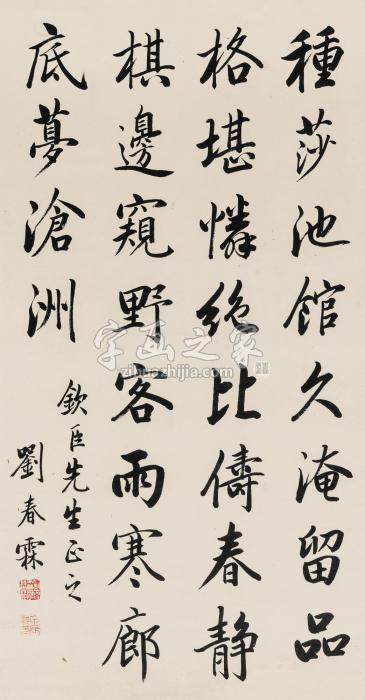 種莎池館久淹留品
格堪憐絕比儔春靜
棋邊窺野客雨寒廊
底夢滄洲
欽臣先生正之
劉春霖
字画之家
zihuazhijia.com